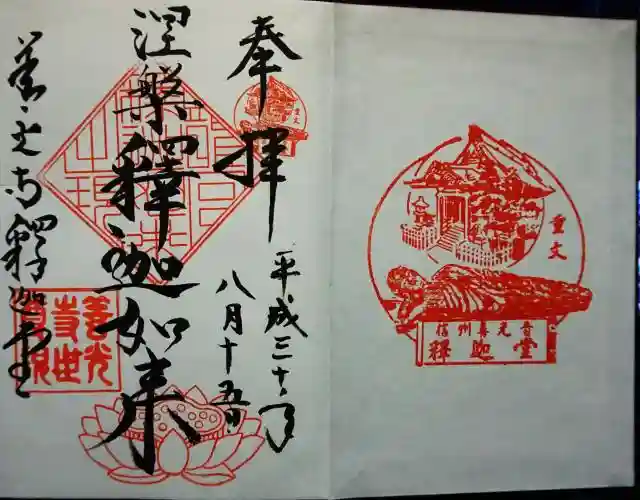 奉拝
重文
平成三十年
八月十五日
涅槃釋迦如来
善光寺釋迦堂
善光
寺世
重文
信州善光寺
釋迦堂